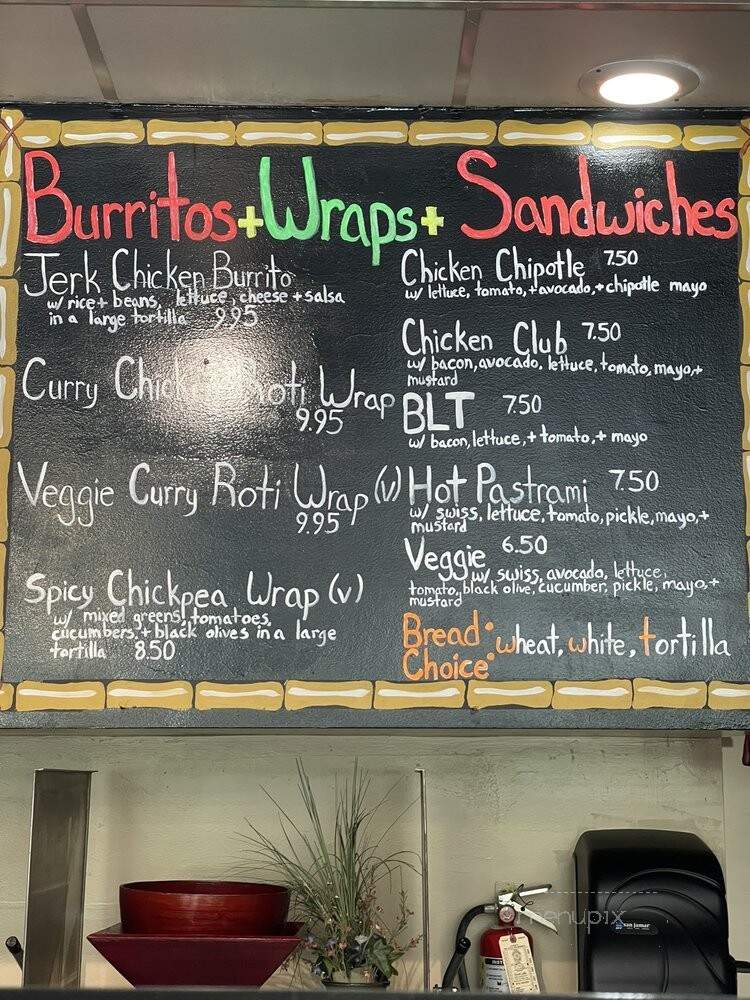 Burritos + Wraps + Sandwiches
Jerk Chicken Burrito
w/ rice + beans, lettuce, cheese + salsa
in a large tortilla 9.95
Curry Chicken Roti Wrap
9.95
Veggie Curry Roti Wrap (v)
9.95
Spicy Chickpea Wrap (v)
w/ mixed greens, tomatoes,
cucumbers, + black olives in a large
tortilla 8.50
Chicken Chipotle 7.50
w/ lettuce, tomato, + avocado, + chipotle mayo
Chicken Club 7.50
w/ bacon, avocado, lettuce, tomato, mayo, +
mustard
BLT 7.50
w/ bacon, lettuce, + tomato, + mayo
Hot Pastrami 7.50
w/ swiss, lettuce, tomato, pickle, mayo, +
mustard
Veggie 6.50
w/ swiss, avocado, lettuce,
tomato, black olive, cucumber, pickle, mayo, +
mustard
Bread Choice: wheat, white, tortilla
menupix
san jamar